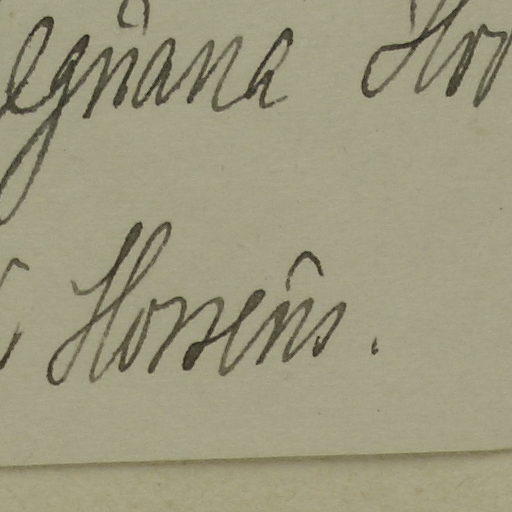 eguana Hor
Horsens.